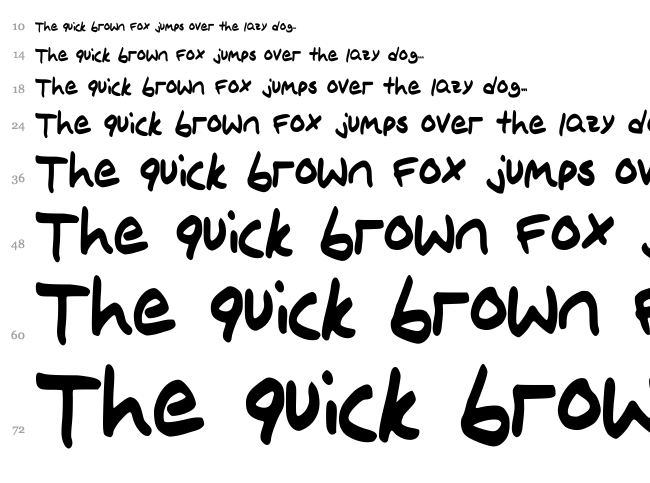 10 The quick brown fox jumps over the lazy dog...
14 The quick brown fox jumps over the lazy dog...
18 The quick brown fox jumps over the lazy dog...
24 The quick brown fox jumps over the lazy d
36 The quick brown fox jumps ov
48 The quick brown fox
60 The quick brown
72 The quick brow